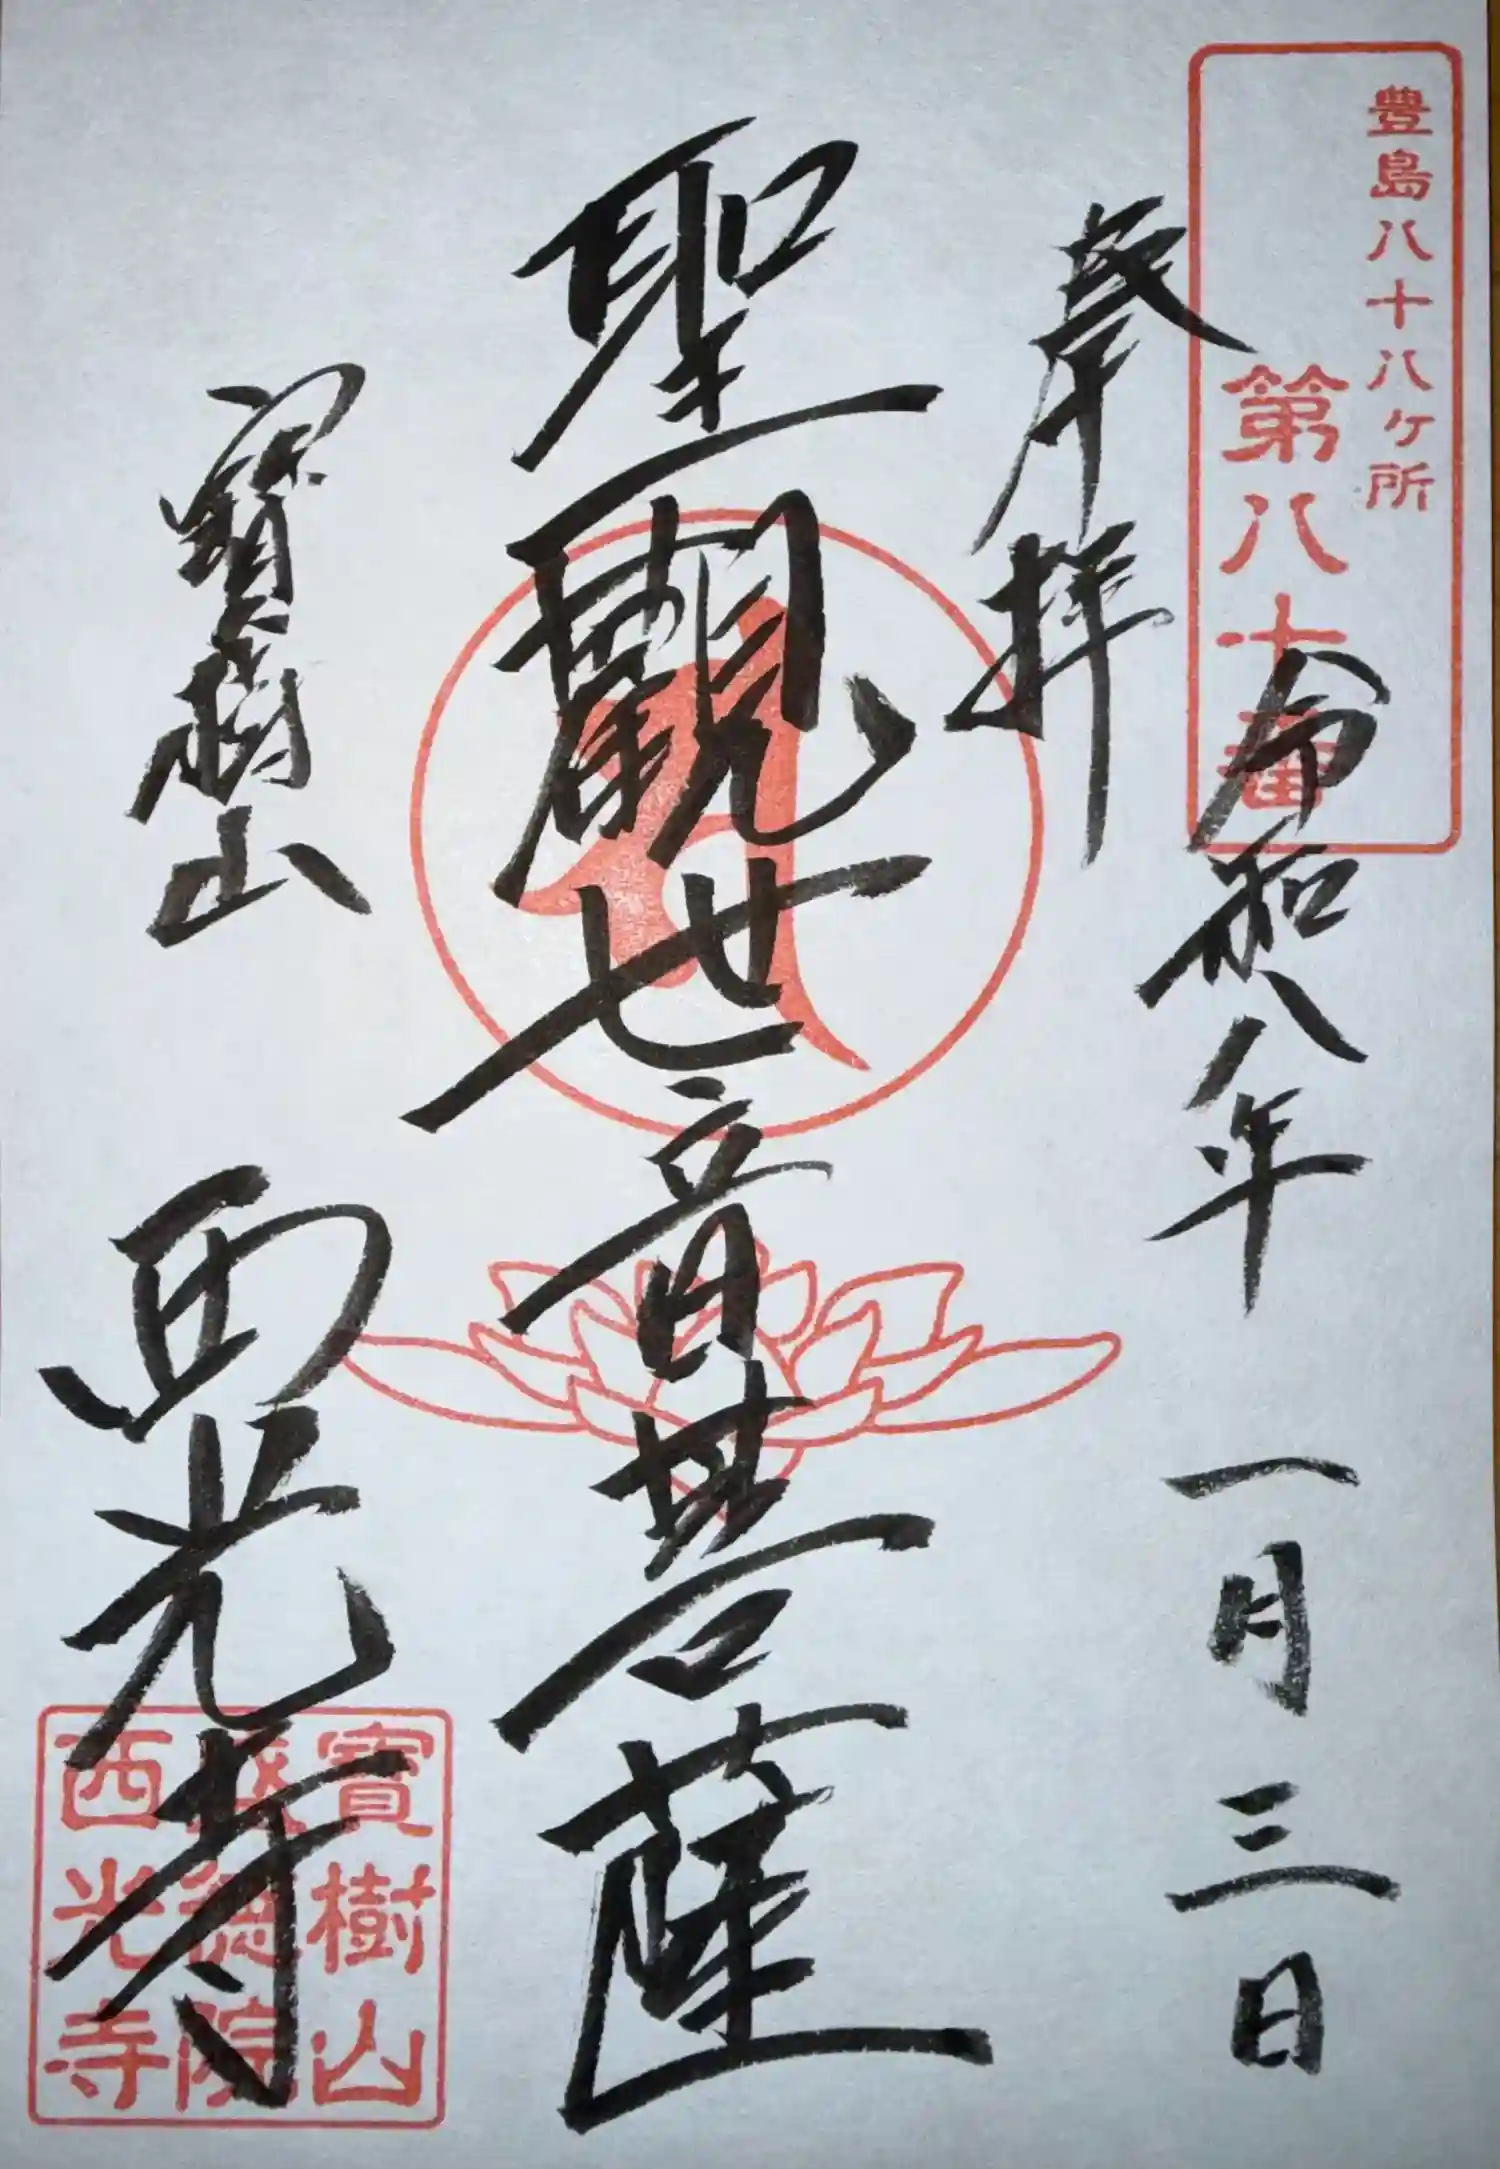 豊島八十八ヶ所
第八十番
奉拝
令和八年 一月三日
聖觀世音菩薩
寶樹山 西光寺
寶樹山
徳院
西光寺